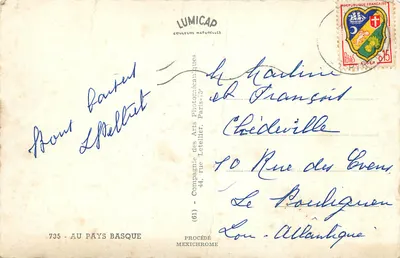 LUMICAP
COULEURS NATURELLES
RÉPUBLIQUE FRANÇAISE
Bons baisers
M Martine
et François
Chédeville
10 Rue des Evens
Le Pouliguen
Loir-Atlantique
(61) - Compagnie des Arts Photomécaniques
44, rue Letellier, Paris-
735 - AU PAYS BASQUE
PROCÉDÉ
MEXICHROME